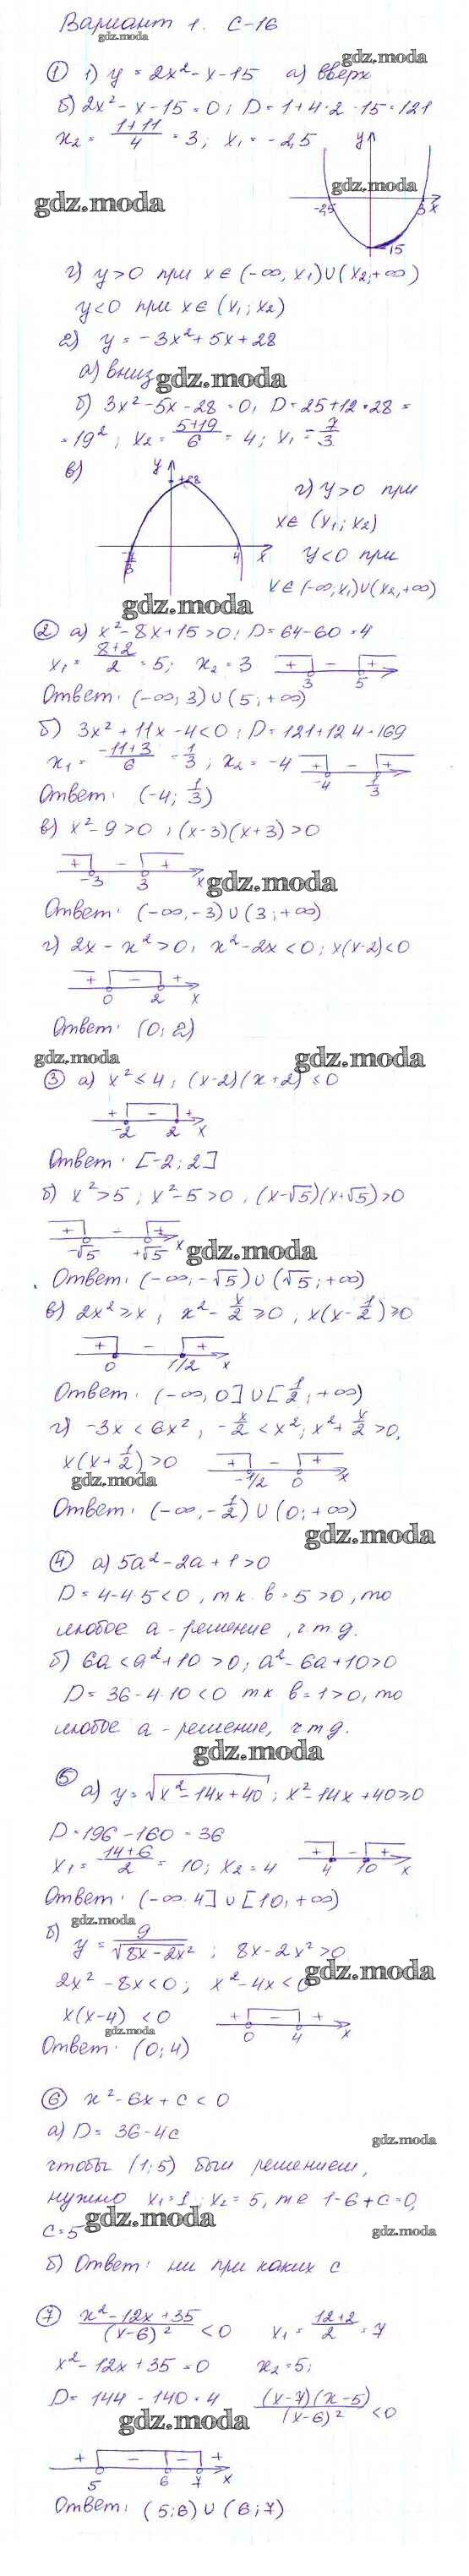 Вариант 1. С-16
gdz.moda
gdz.moda
① 1) y = 2x² - x - 15 а) вверх
б) 2x² - x - 15 = 0; D = 1 + 4·2·15 = 121
x₂ = (1+11)/4 = 3; x₁ = -2,5
y
gdz.moda
gdz.moda
-2,5 3 x
-15
г) y > 0 при x ∈ (-∞, x₁) ∪ (x₂; +∞)
y < 0 при x ∈ (x₁; x₂)
2) y = -3x² + 5x + 28
а) вниз
gdz.moda
б) 3x² - 5x - 28 = 0, D = 25 + 12·28 =
= 19²; x₂ = (5+19)/6 = 4; x₁ = 7/3
в) y 28
г) y > 0 при
x ∈ (x₁; x₂)
-7/3 4 x
y < 0 при
x ∈ (-∞; x₁) ∪ (x₂, +∞)
gdz.moda
② а) x² - 8x + 15 > 0; D = 64 - 60 = 4
x₁ = (8+2)/2 = 5; x₂ = 3 + - +
3 5
Ответ: (-∞; 3) ∪ (5; +∞)
б) 3x² + 11x - 4 < 0; D = 121 + 12 4 = 169
x₁ = (-11+3)/6 = 1/3; x₂ = -4 + - +
-4 1/3
Ответ: (-4; 1/3)
в) x² - 9 > 0; (x-3)(x+3) > 0
+ - +
-3 3 x
gdz.moda
Ответ: (-∞, -3) ∪ (3; +∞)
г) 2x - x² > 0; x² - 2x < 0; x(x-2) < 0
+ - +
0 2 x
Ответ: (0; 2)
gdz.moda
gdz.moda
③ а) x² ≤ 4; (x-2)(x+2) ≤ 0
+ - +
-2 2 x
Ответ: [-2; 2]
б) x² > 5; x² - 5 > 0, (x-√5)(x+√5) > 0
+ - +
-√5 +√5 x
gdz.moda
Ответ: (-∞, -√5) ∪ (√5; +∞)
в) 2x² ≥ x; x² - x/2 ≥ 0; x(x - 1/2) ≥ 0
+ - +
0 1/2 x
Ответ: (-∞, 0] ∪ [1/2; +∞)
г) -3x < 6x²; -x/2 < x²; x² + x/2 > 0,
x(x + 1/2) > 0 + - +
gdz.moda
-1/2 0 x
Ответ: (-∞, -1/2) ∪ (0; +∞)
gdz.moda
④ а) 5a² - 2a + 1 > 0
D = 4 - 4·5 < 0, т.к. в = 5 > 0, то
любое a - решение, ч.т.д.
б) 6a < a² + 10 > 0; a² - 6a + 10 > 0
D = 36 - 4·10 < 0 т.к. в = 1 > 0, то
любое a - решение, ч.т.д.
gdz.moda
⑤ а) y = √(x² - 14x + 40); x² - 14x + 40 ≥ 0
D = 196 - 160 = 36
x₁ = (14+6)/2 = 10; x₂ = 4 + - +
4 10 x
Ответ: (-∞ 4] ∪ [10; +∞)
gdz.moda
б) y = 9/√(8x - 2x²); 8x - 2x² > 0
gdz.moda
2x² - 8x < 0; x² - 4x < 0
x(x-4) < 0 + - +
gdz.moda
0 4 x
Ответ: (0; 4)
⑥ x² - 6x + c < 0
а) D = 36 - 4c
gdz.moda
чтобы (1; 5) был решением,
нужно x₁ = 1; x₂ = 5, т.е 1 - 6 + c = 0,
gdz.moda
c = 5
gdz.moda
б) Ответ: ни при каких c
⑦ (x² - 12x + 35)/(x-6)² < 0 x₁ = (12+2)/2 = 7
x² - 12x + 35 = 0 x₂ = 5;
D = 144 - 140 = 4 (x-7)(x-5)/(x-6)² < 0
gdz.moda
+ - - +
5 6 7 x
Ответ: (5; 6) ∪ (6; 7)